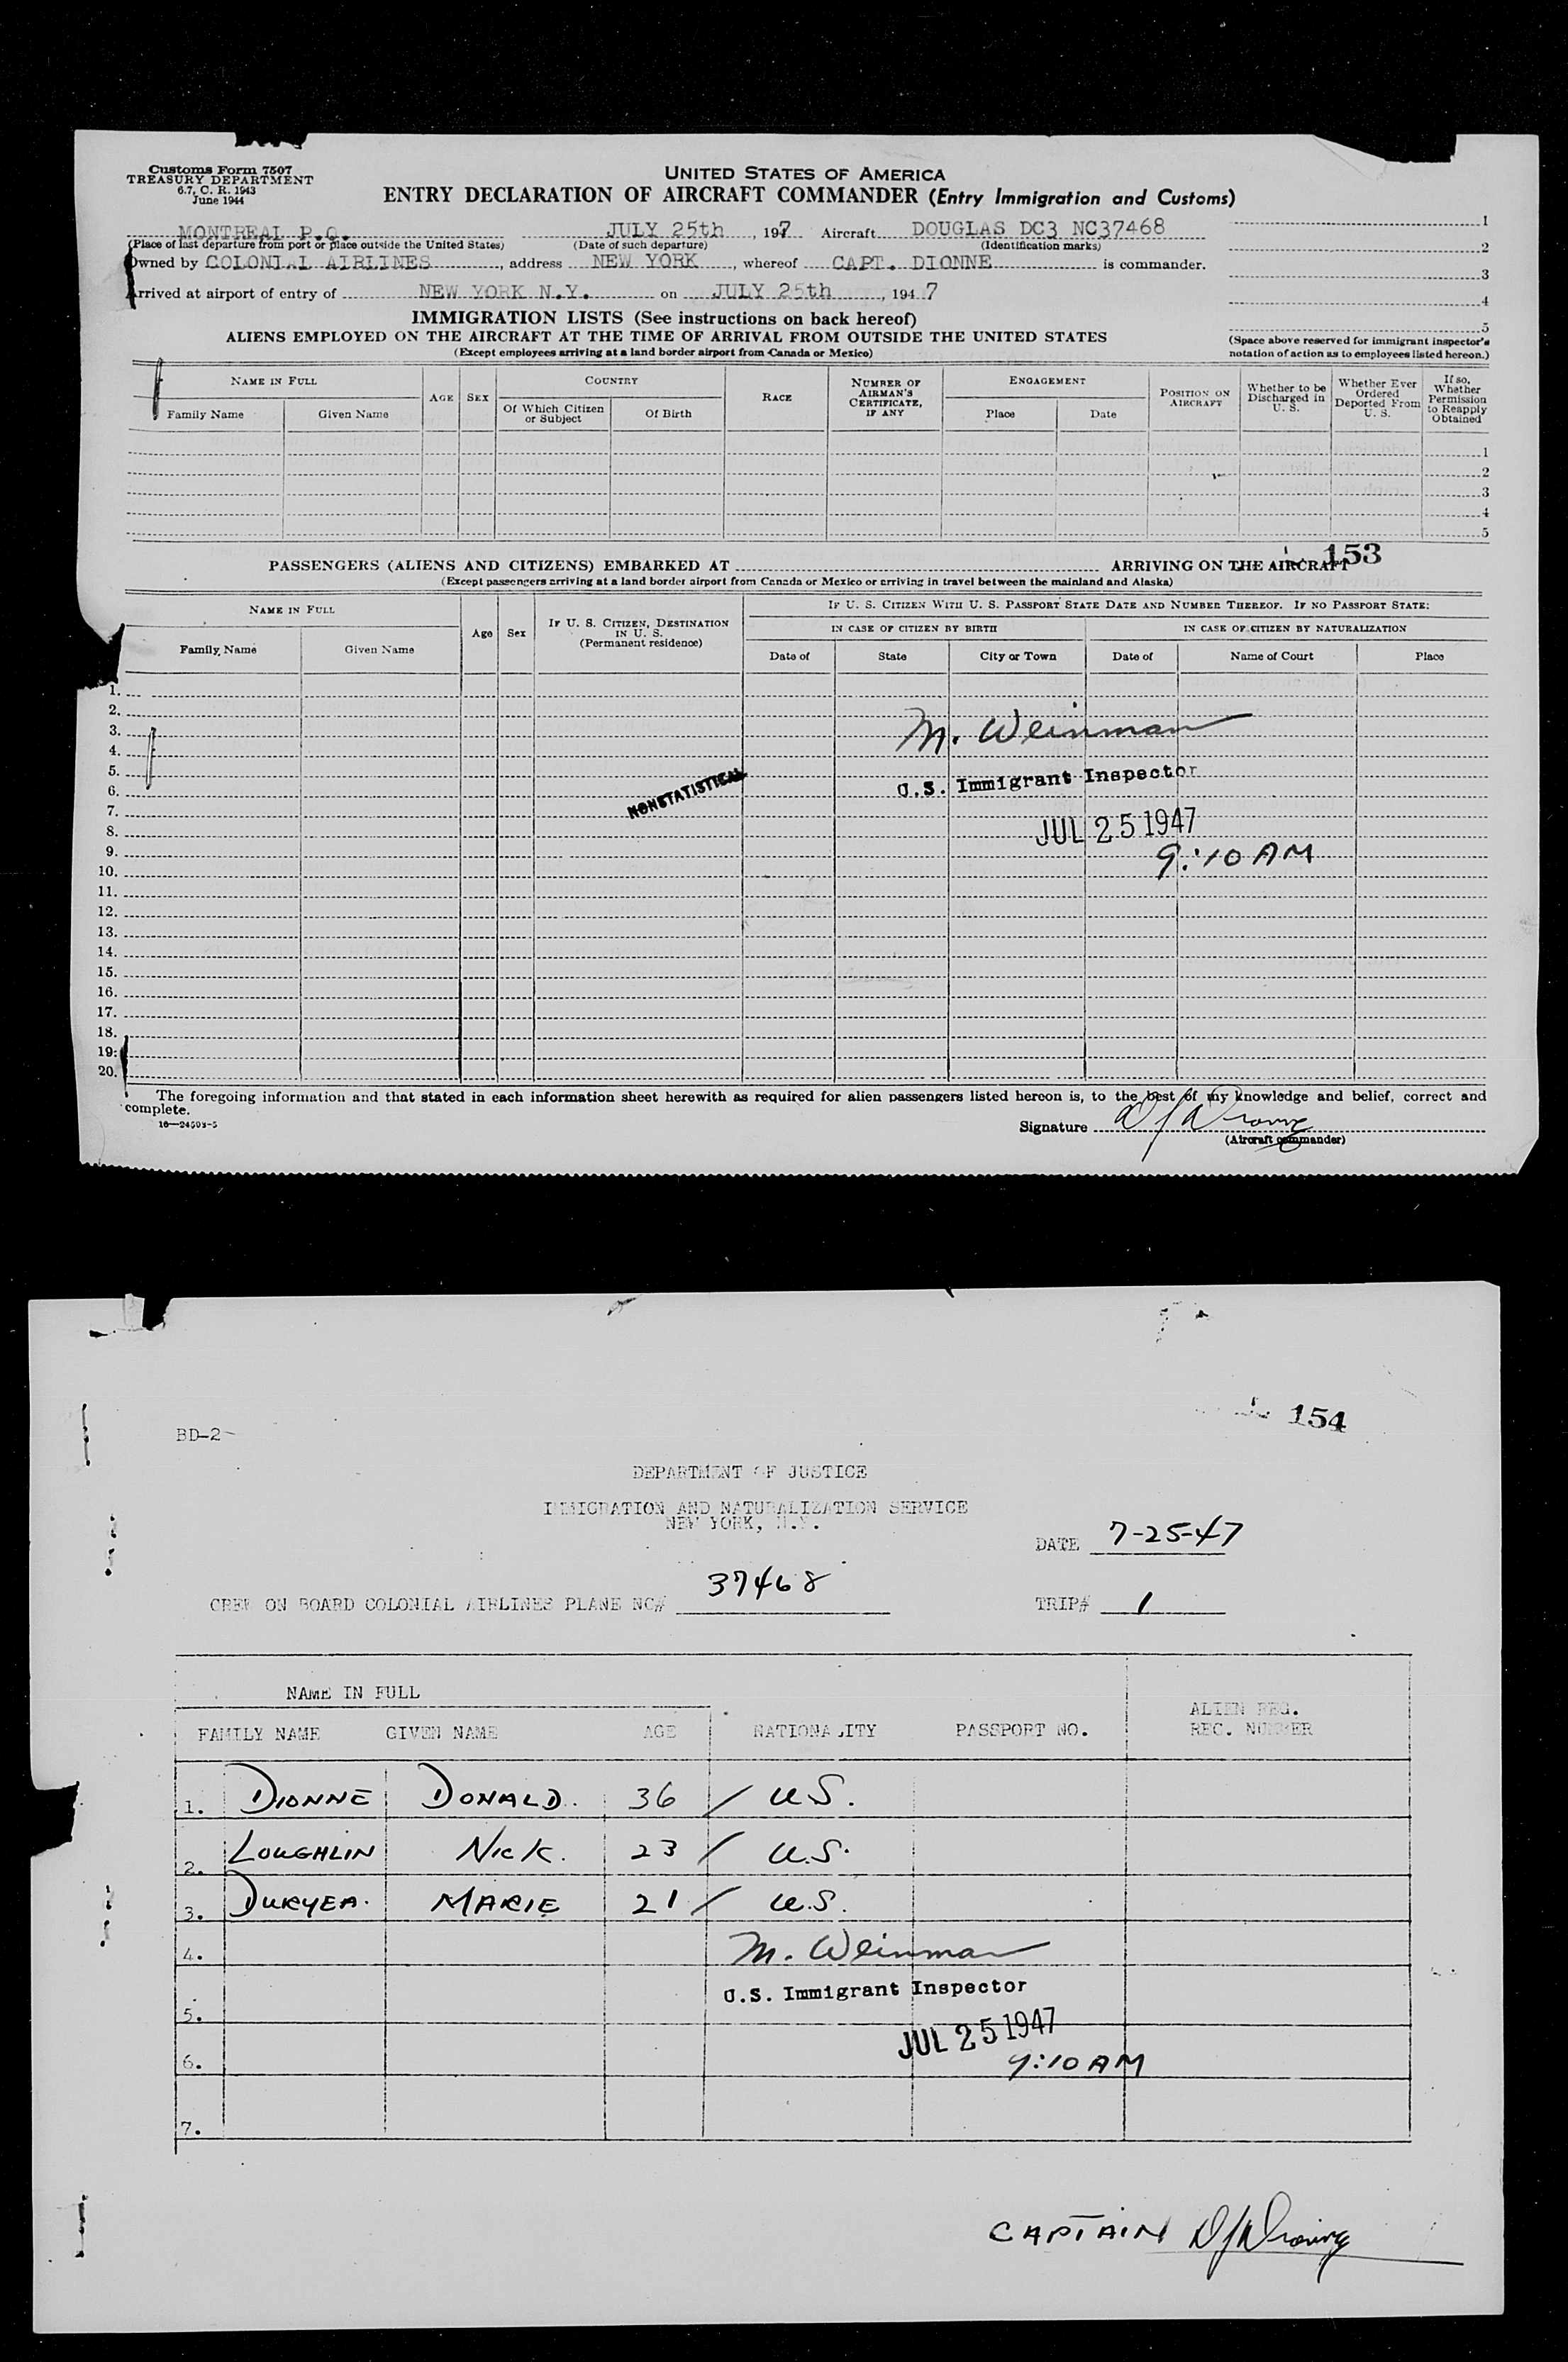 Customs Form 7507
TREASURY DEPARTMENT
6.7, C. R. 1943
June 1944
UNITED STATES OF AMERICA
ENTRY DECLARATION OF AIRCRAFT COMMANDER (Entry Immigration and Customs)
MONTREAL P.Q. JULY 25th, 1947 Aircraft DOUGLAS DC3 NC37468 1
(Place of last departure from port or place outside the United States) (Date of such departure) (Identification marks) 2
Owned by COLONIAL AIRLINES, address NEW YORK, whereof CAPT. DIONNE is commander. 3
Arrived at airport of entry of NEW YORK N.Y. on JULY 25th, 1947 4
IMMIGRATION LISTS (See instructions on back hereof) 5
ALIENS EMPLOYED ON THE AIRCRAFT AT THE TIME OF ARRIVAL FROM OUTSIDE THE UNITED STATES
(Except employees arriving at a land border airport from Canada or Mexico)
(Space above reserved for immigrant inspector's notation of action as to employees listed hereon.)
NAME IN FULL AGE SEX COUNTRY RACE NUMBER OF AIRMAN'S CERTIFICATE, IF ANY ENGAGEMENT POSITION ON AIRCRAFT Whether to be Discharged in U. S. Whether Ever Ordered Deported From U. S. If so, Whether Permission to Reapply Obtained
Family Name Given Name Of Which Citizen or Subject Of Birth Place Date
1
2
3
4
5
153
PASSENGERS (ALIENS AND CITIZENS) EMBARKED AT ARRIVING ON THE AIRCRAFT
(Except passengers arriving at a land border airport from Canada or Mexico or arriving in travel between the mainland and Alaska)
NAME IN FULL Age Sex IF U. S. CITIZEN, DESTINATION IN U. S. (Permanent residence) IF U. S. CITIZEN WITH U. S. PASSPORT STATE DATE AND NUMBER THEREOF. IF NO PASSPORT STATE:
IN CASE OF CITIZEN BY BIRTH IN CASE OF CITIZEN BY NATURALIZATION
Family Name Given Name Date of State City or Town Date of Name of Court Place
1.
2.
3. M. Weinman
4.
5. U.S. Immigrant Inspector
6. NONSTATISTICAL
7.
8. JUL 25 1947
9. 9:10 AM
10.
11.
12.
13.
14.
15.
16.
17.
18.
19.
20.
The foregoing information and that stated in each information sheet herewith as required for alien passengers listed hereon is, to the best of my knowledge and belief, correct and
complete.
16—24503-5
Signature D J Dionne
(Aircraft commander)
154
BD-2
DEPARTMENT OF JUSTICE
IMMIGRATION AND NATURALIZATION SERVICE
NEW YORK, N.Y.
DATE 7-25-47
CREW ON BOARD COLONIAL AIRLINES PLANE NC# 37468 TRIP# 1
NAME IN FULL
FAMILY NAME GIVEN NAME AGE NATIONALITY PASSPORT NO. ALIEN REG. REC. NUMBER
1. DIONNE DONALD. 36 / U.S.
2. LOUGHLIN NICK. 23 / U.S.
3. DURYEA. MARIE 21 / U.S.
4. M. Weinman
U.S. Immigrant Inspector
5.
JUL 25 1947
6. 9:10 AM
7.
CAPTAIN D J Dionne